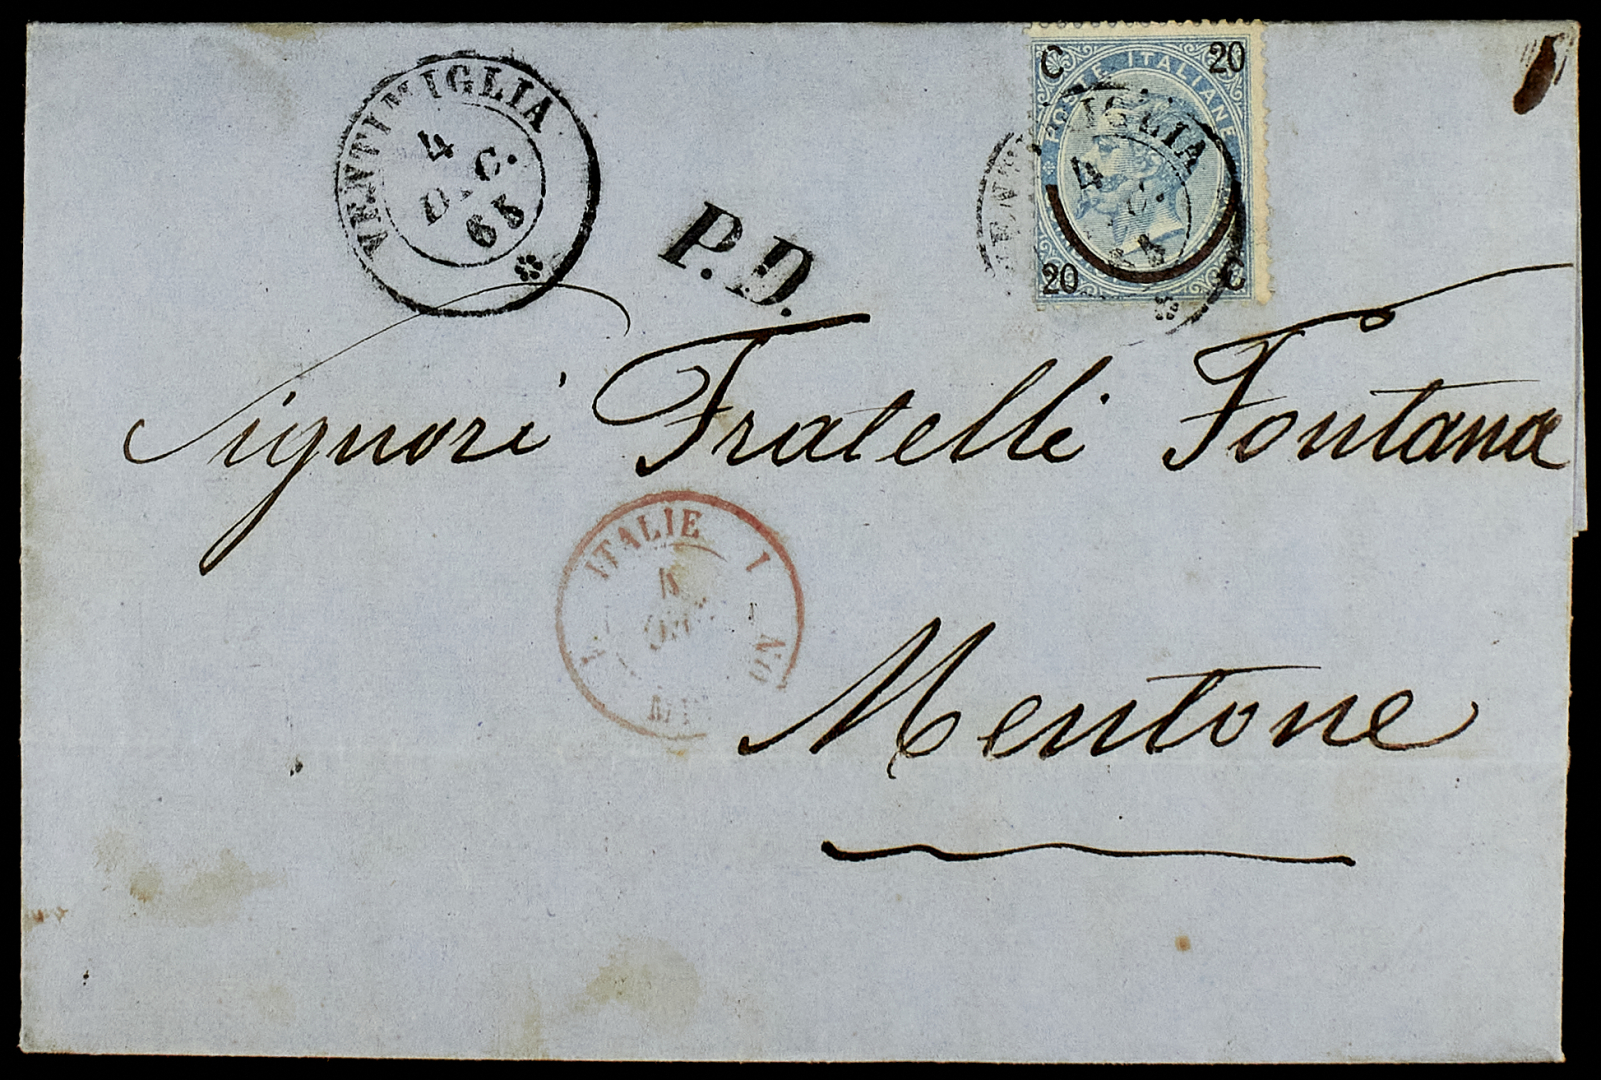 VENTIMIGLIA
4
DIC.
65
P.D.
C 20
POSTE ITALIANE
20 C
VENTIMIGLIA
4
Signori Fratelli Fontana
ITALIE
Mentone